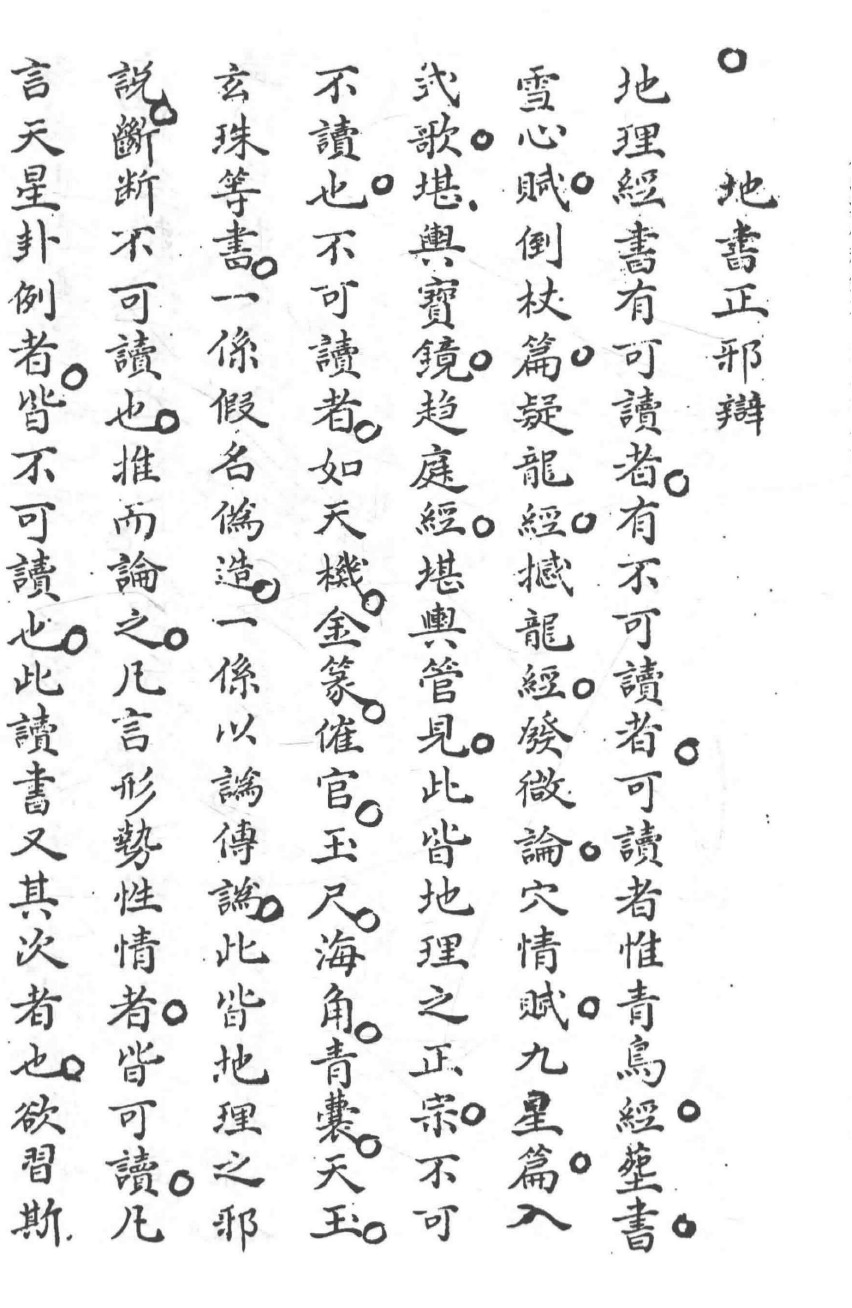 地書正邪辯
地理經書有可讀者有不可讀者可讀者惟青鳥經塟書
雪心賦倒杖篇疑龍經撼龍經發微論穴情賦九星篇入
式歌堪輿寶鏡趋庭經堪輿管見此皆地理之正宗不可
不讀也不可讀者如天機金篆催官玉尺海角青囊天玉
玄珠等書一係假名偽造一係以譌傳譌此皆地理之邪
説斷断不可讀也推而論之凡言形勢性情者皆可讀凡
言天星卦例者皆不可讀也此讀書又其次者也欲習斯